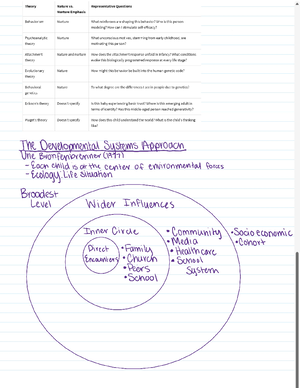 Theory Nature vs. Nurture Emphasis Representative Questions
Behaviorism Nurture What reinforcers are shaping this behavior? Who is this person
modeling? How can I stimulate self-efficacy?
Psychoanalytic theory Nurture What unconscious motives, stemming from early childhood, are
motivating this person?
Attachment theory Nature and nurture How does the attachment response unfold in infancy? What conditions
evoke this biologically programmed response at every life stage?
Evolutionary theory Nature How might this behavior be built into the human genetic code?
Behavioral genetics Nature To what degree are the differences I see in people due to genetics?
Erikson's theory Doesn't specify Is this baby experiencing basic trust? Where is this teenager in
terms of identity? Has this middle-aged person reached generativity?
Piaget's theory Doesn't specify How does this child understand the world? What is this child's thinking
like?
The Developmental Systems Approach
Urie Bronfenbrenner (1977)
- Each child is at the center of environmental focus
- Ecology, Life Situation
Broadest
Level
Wider Influences
Inner Circle
Direct
Encounters
• Family
• Church
• Peers
• School
• Community
• Media
• Healthcare
• School
System
• Socioeconomic
• Cohort